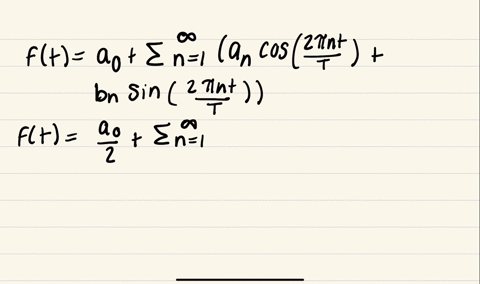 f(t) = a₀ + Σ n=1^∞ (aₙ cos(2πnt/T) +
bn sin(2πnt/T))
f(t) = a₀/2 + Σ n=1^∞